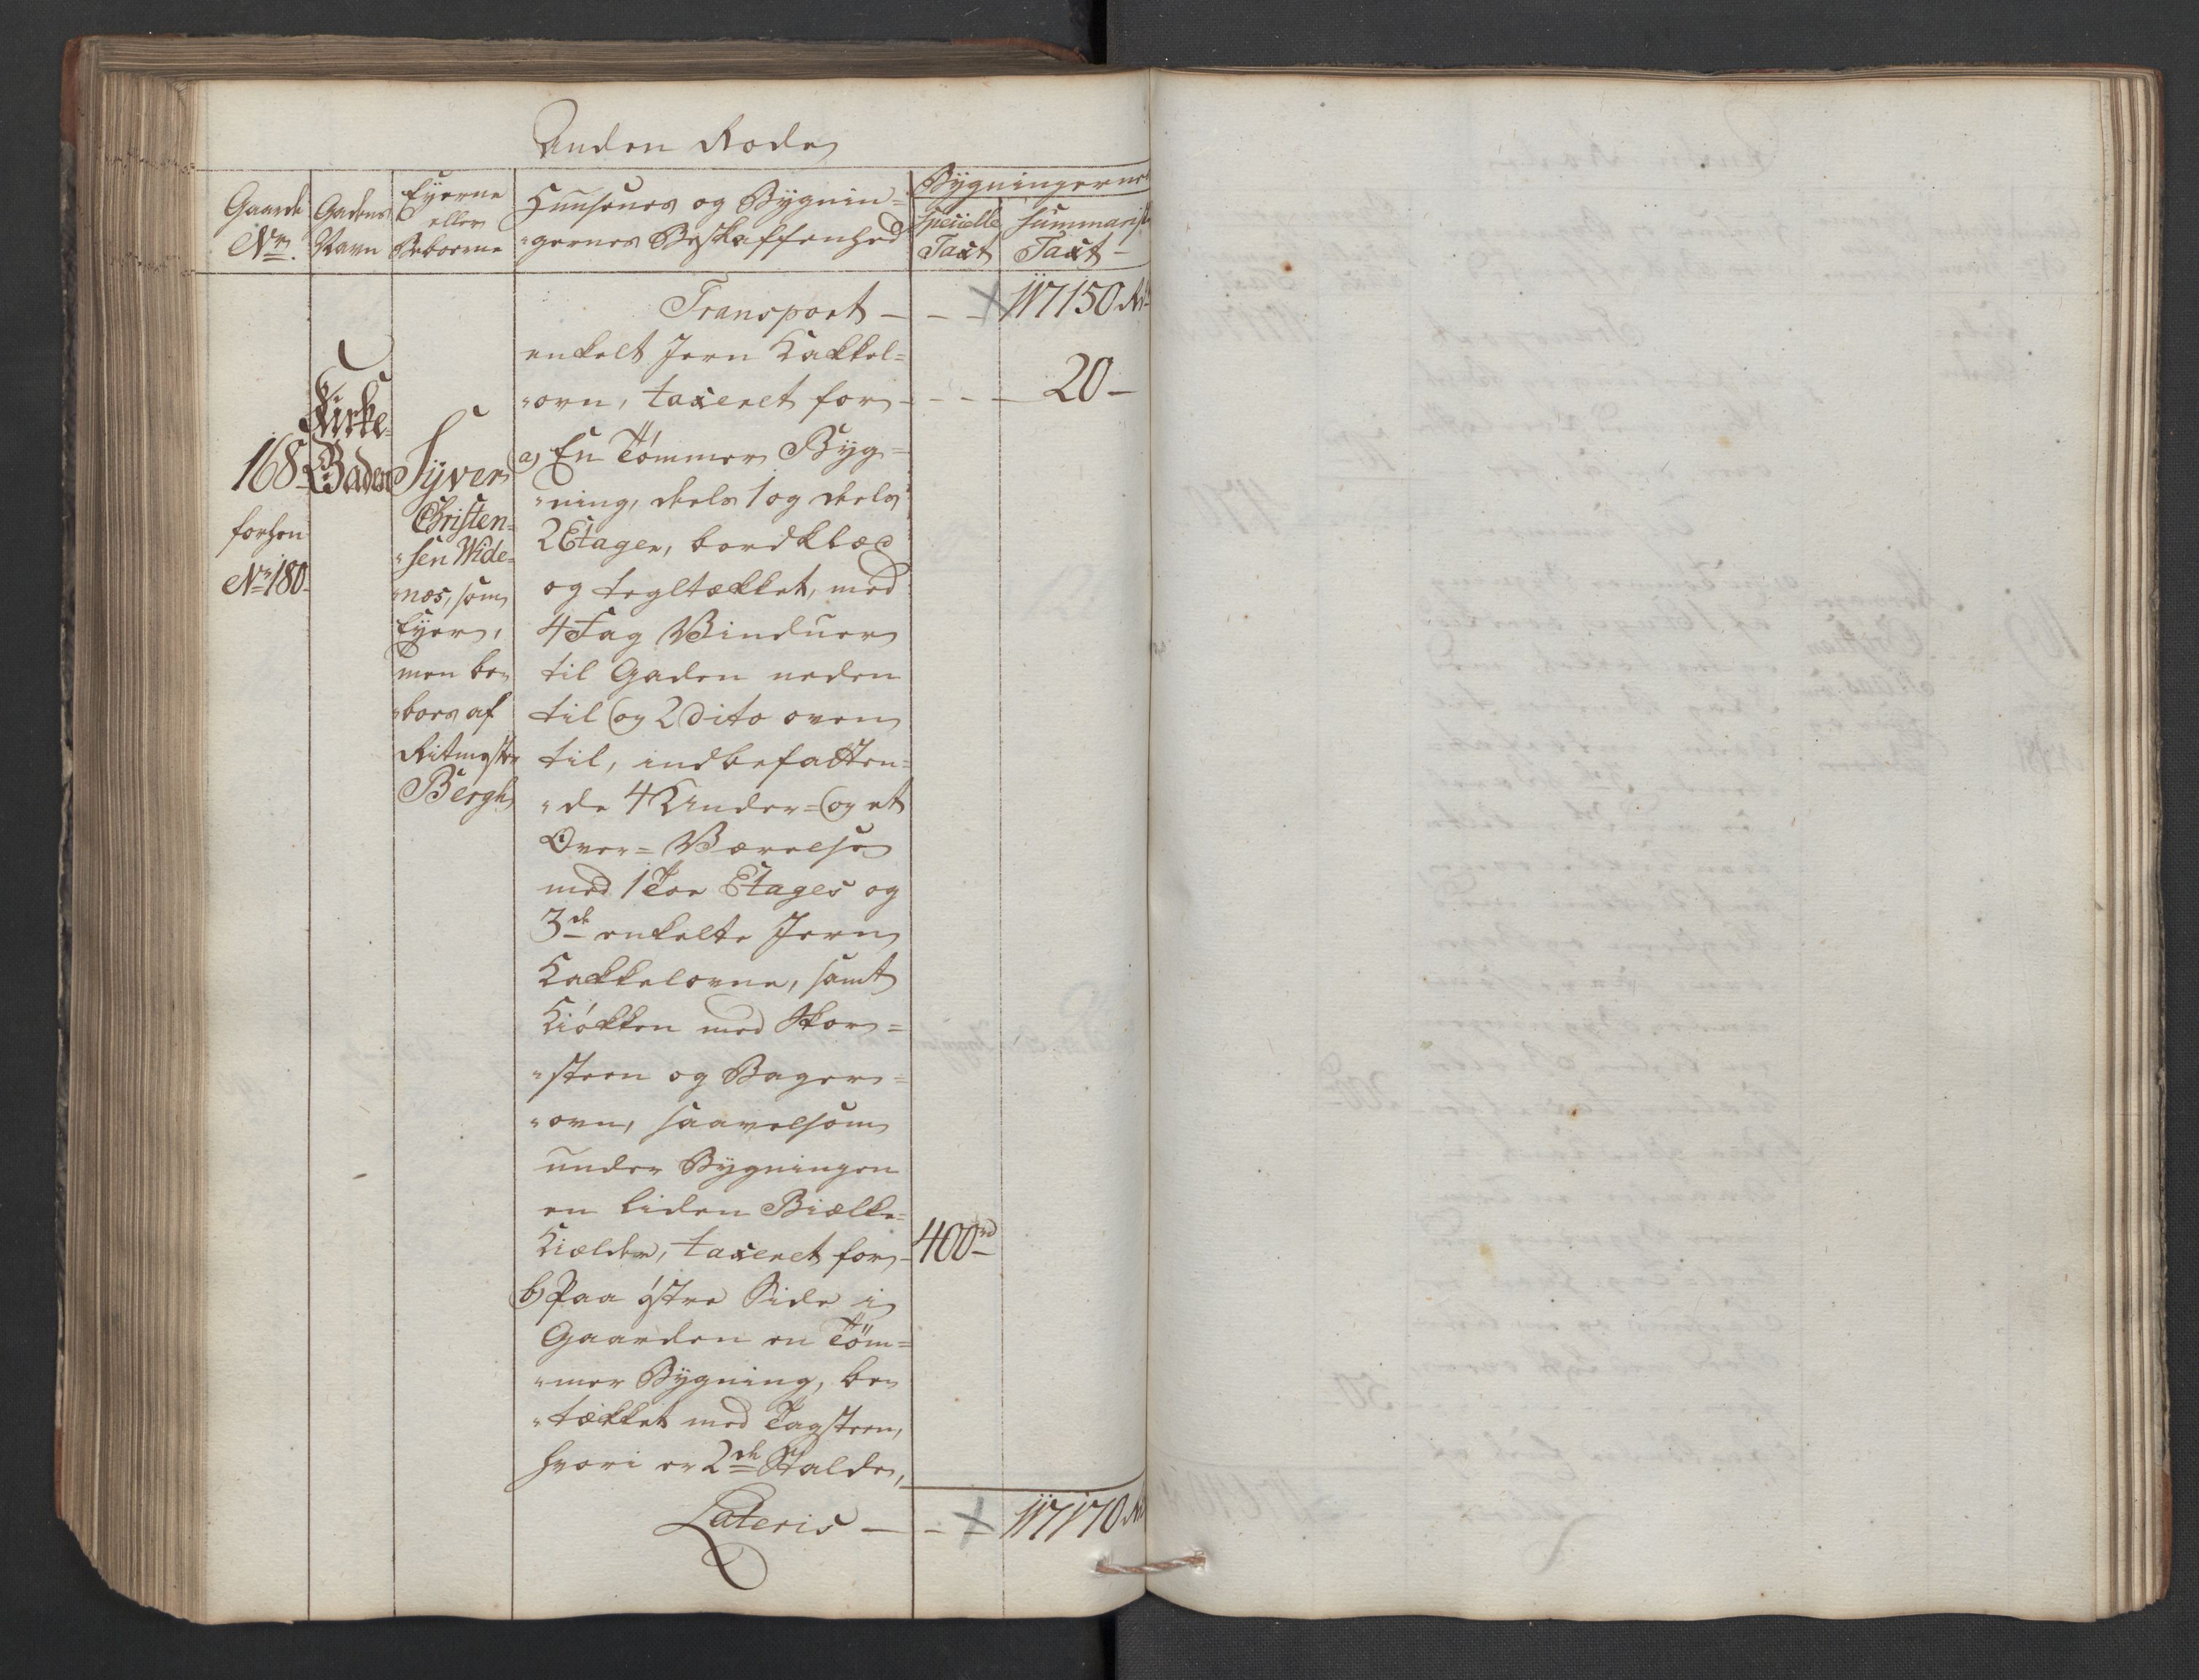 Anden Rode
Gaarde
No.
Gadens
Navn
Eyerne
eller
Beboerne
Huusenes og Bygnin=
"gernes Beskaffenhed
Bygningernes
Specielle
Taxt
Summarisk
Taxt
Transport - - - 117150 Rd
enkelt Jern Kakkel=
"ovn, taxeret for - - - 20 -
168
forhen
No. 180
Kirke=
Gaden
Syver
Christen=
"sen Wide=
"næs, som
Eyer,
men be=
"boes af
Ritmester
Bergh
a) En Tømmer Byg=
"ning, deels 1 og deels
2 Etager, bordklæd
og tegltækket, med
4 Fag Vinduer
til Gaden neden
til og 2 dito oven
til, indbefatten=
"de 4 Under= og et
Over= Værelse
med 1 Toe Etages og
3de enkelte Jern
Kakkelovne, samt
Kiøkken med Skor=
"steen og Bager=
"ovn, saavelsom
under Bygningen
en liden Biælke=
Kielder, taxeret for - 400 rd
b) Paa østre Side i
Gaarden en Tøm=
"mer Bygning, be=
"tækket med Tagsteen,
hvori er 2de Stalde,
Lateris - - - 117170 Rd